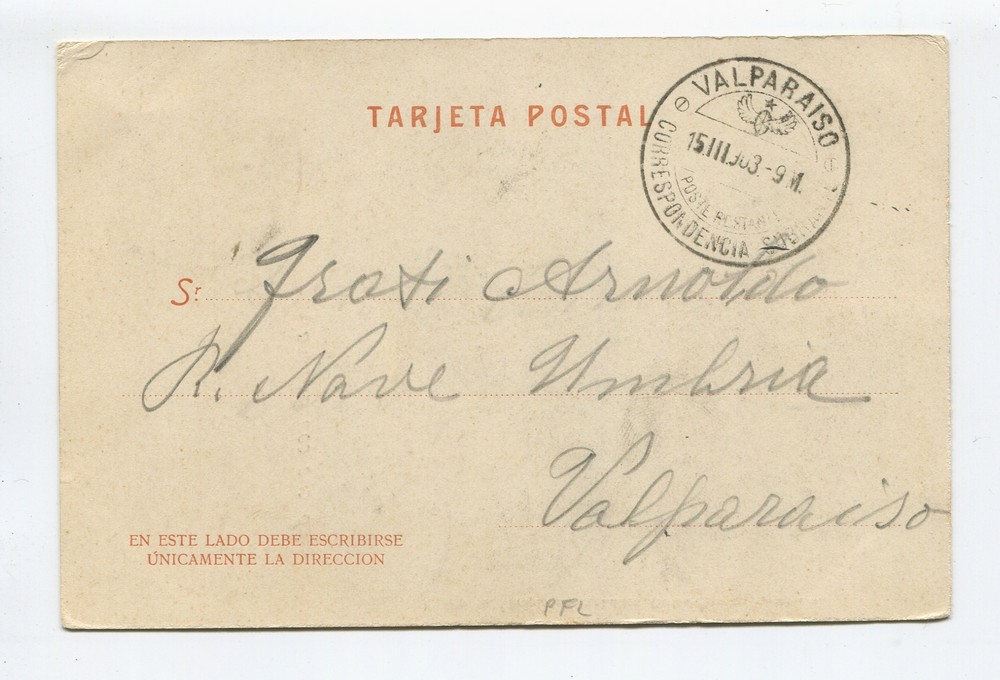 TARJETA POSTAL
VALPARAISO
15.III.903.-9 M.
POSTE RESTANTE
CORRESPONDENCIA
Sr. Frati Arnoldo
R. Nave Umbria
Valparaiso
EN ESTE LADO DEBE ESCRIBIRSE
ÚNICAMENTE LA DIRECCION
PFL